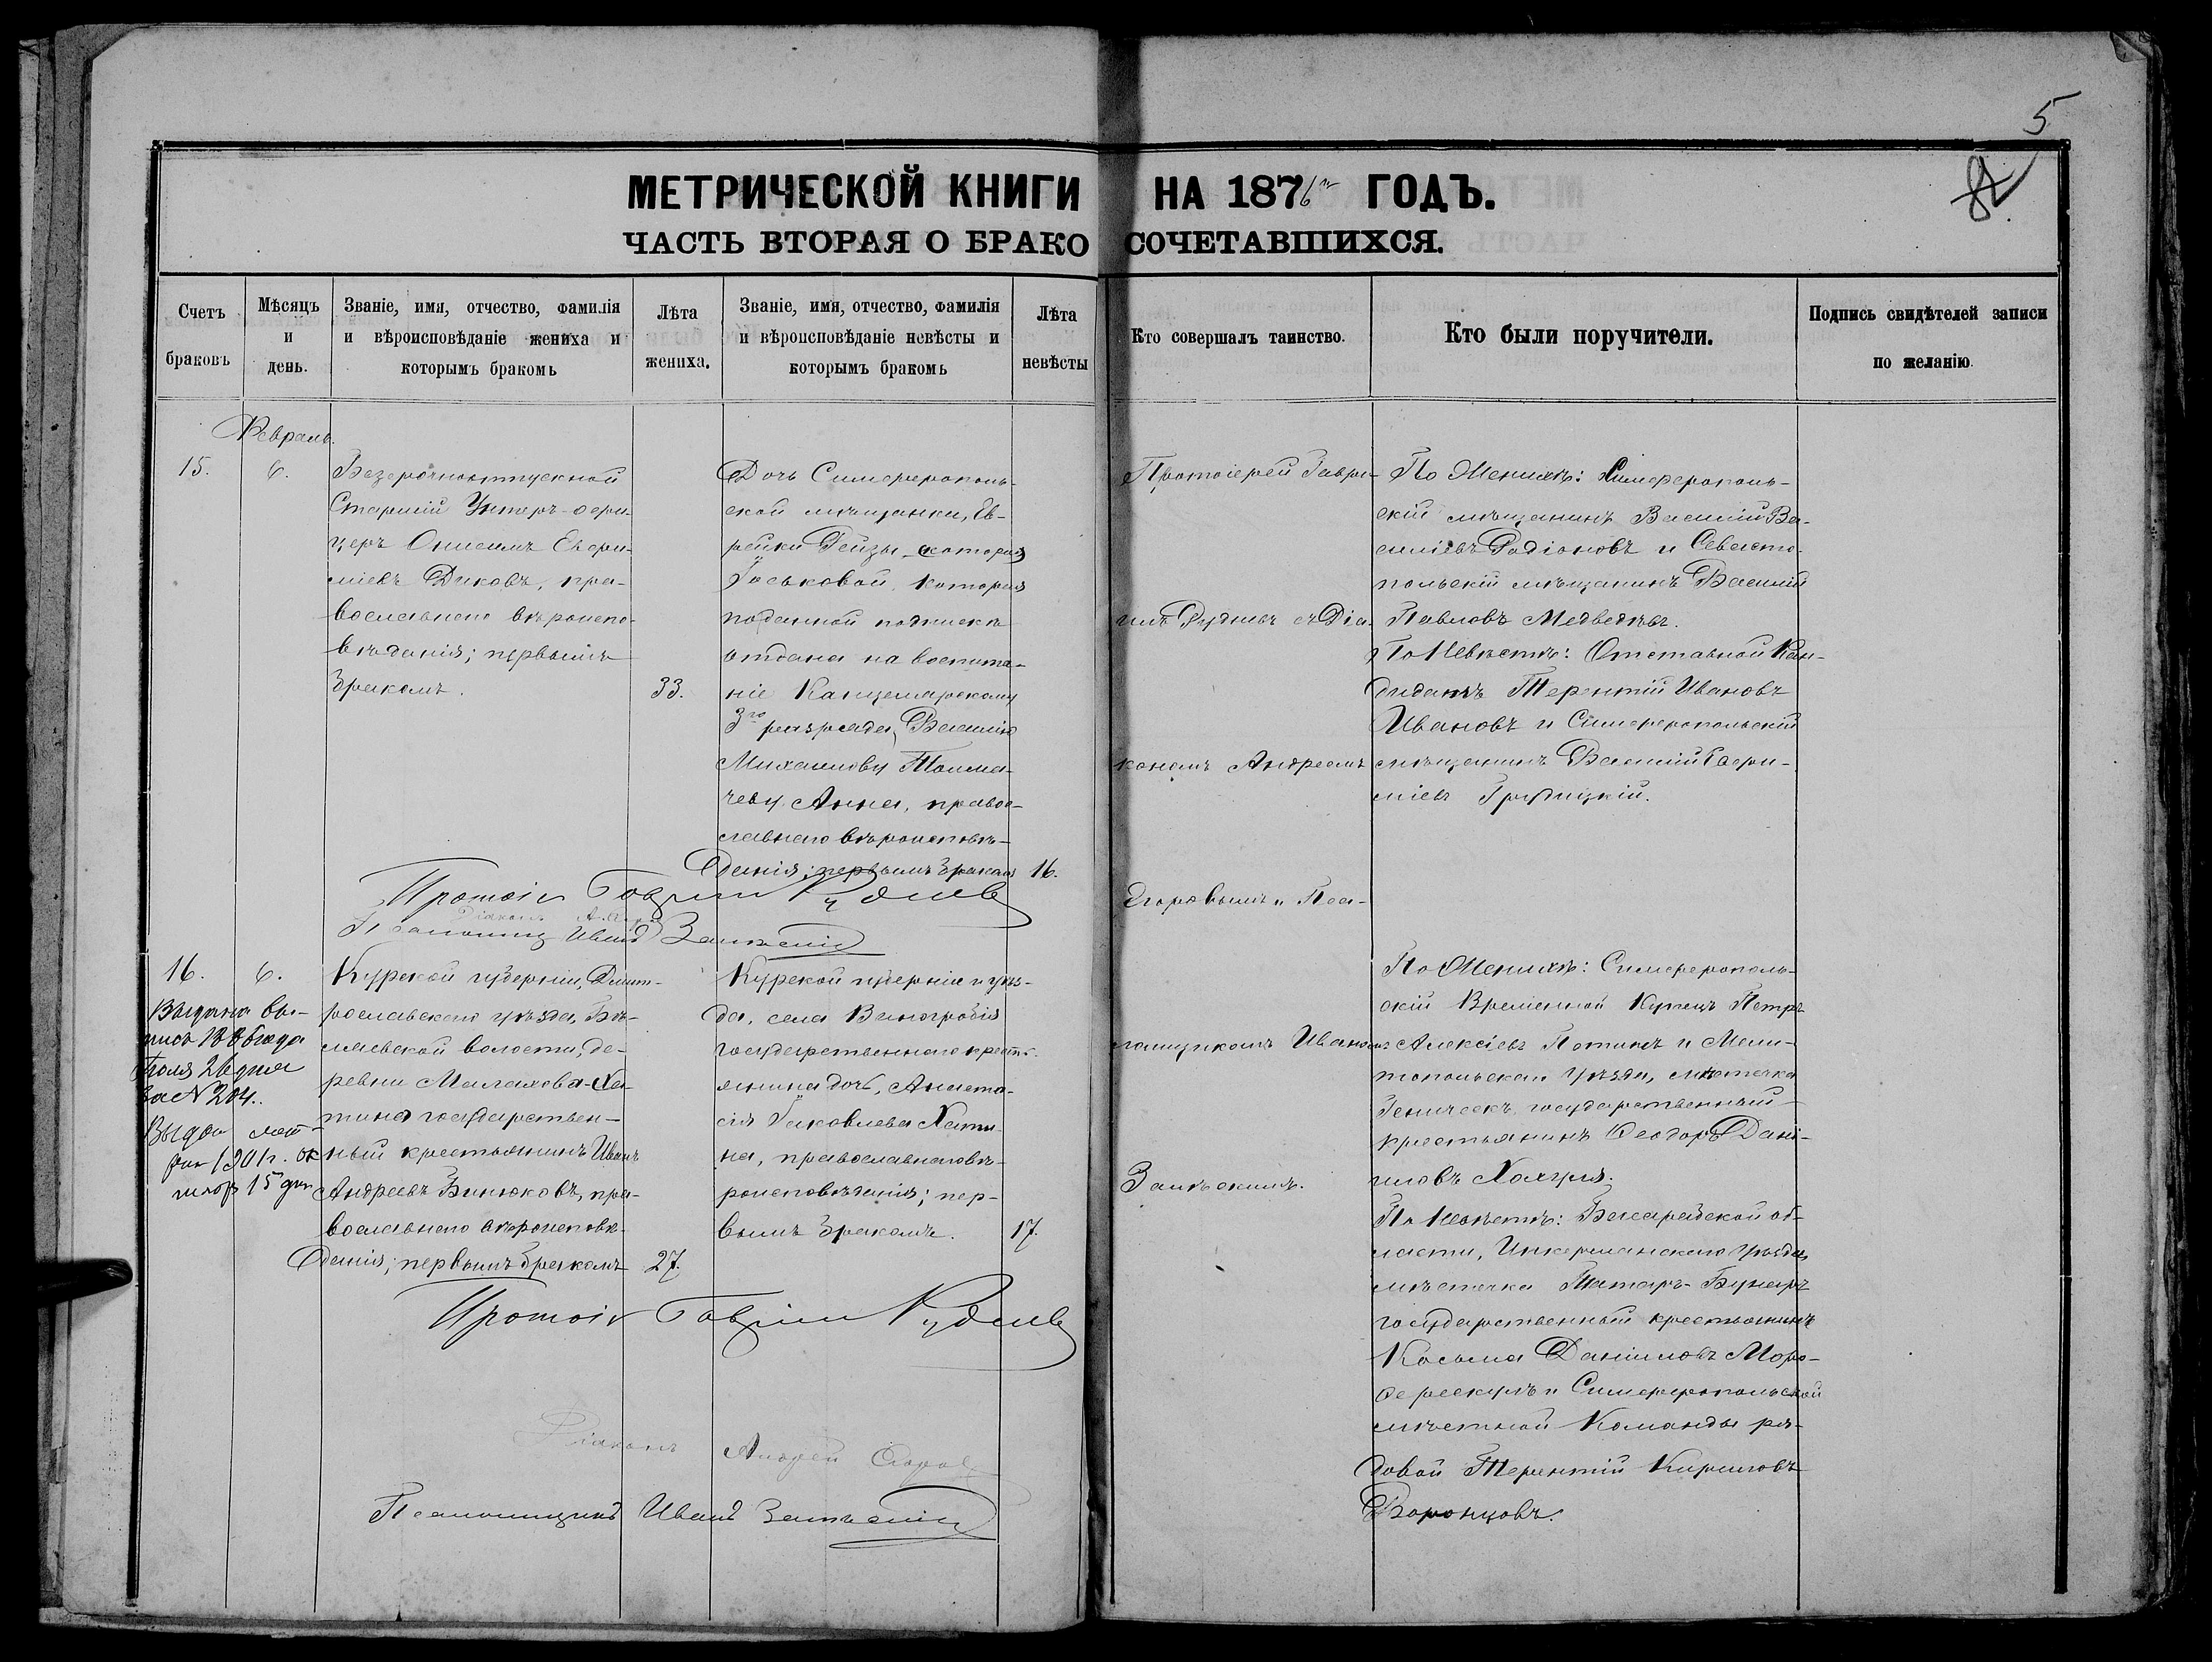 5
МЕТРИЧЕСКОЙ КНИГИ НА 1876 ГОДЪ.
ЧАСТЬ ВТОРАЯ О БРАКОСОЧЕТАВШИХСЯ.
Счетъ браковъ
Мѣсяцъ и день.
Званіе, имя, отчество, фамилія и вѣроисповѣданіе жениха и которымъ бракомъ
Лѣта жениха.
Званіе, имя, отчество, фамилія и вѣроисповѣданіе невѣсты и которымъ бракомъ
Лѣта невѣсты
Кто совершалъ таинство.
Кто были поручители.
Подпись свидѣтелей записи по желанію
Февраль.
15.
6.
Безсрочноотпускной
Старшій Унтеръ-офи-
церъ Онисимъ Евфи-
міевъ Диковъ, пра-
вославнаго вѣроиспо-
вѣданія; первымъ
бракомъ.
33.
Дочь Симферополь-
ской мѣщанки, Ев-
рейки Рейзы
которая
поданной подписки
отдана на воспита-
ніе Канцелярскому
3го разряда, Василію
Михайлову Толма-
чеву Анна, право-
славнаго вѣроисповѣ-
данія; первымъ бракомъ
16.
Протоіерей Гаврі-
илъ Рудневъ съ Діа-
кономъ Андреемъ
Егоровымъ и Пса-
ломщикомъ Иваномъ
По Женихѣ: Симферополь-
скій мѣщанинъ Василій Ва-
силіевъ Родіоновъ и Севасто-
польскій мѣщанинъ Василій
Павловъ Медведѣвъ.
По Невѣстѣ: Отставной Кан-
дидатъ Терентій Ивановъ
Ивановъ и Симферопольскій
мѣщанинъ Василій
Протоіе Гавріилъ Рудневъ
Псаломщ Иванъ
16.
6.
Выдана вы-
пись 1886 года
Іюля 26 дня
за № 204.
Курской губерніи, Дмит-
рославскаго уѣзда,
волости, де-
ревни Малахова-Ха-
тина государствен-
ный крестьянинъ Иванъ
Андреевъ Бинюковъ, пра-
вославнаго вѣроисповѣ-
данія; первымъ бракомъ
27.
Курской губерніи и уѣз-
да, села
государственнаго кресть-
янина дочь, Анаста-
сія Яковлева Хати-
на, православнаго вѣ-
роисповѣданія; пер-
вымъ бракомъ.
17.
По Женихѣ: Симферополь-
скій Временной Купецъ Петръ
Алексіевъ Потинъ и Мели-
топольскаго Уѣзда, мѣстечка
Геническъ, государственный
крестьянинъ Феодоръ Дані-
иловъ
По Невѣстѣ: Бесарабской об-
ласти, Инкерманскаго Уѣзда,
мѣстечка Татаръ-Бунаръ
государственный крестьянинъ
Косьма Даніиловъ
и Симферопольской
мѣстной Команды ря-
довой Терентій Кириловъ
Воронцовъ.
Протоіе Гавріилъ Рудневъ
Діаконъ Андрей Егоровъ
Псаломщикъ Иванъ